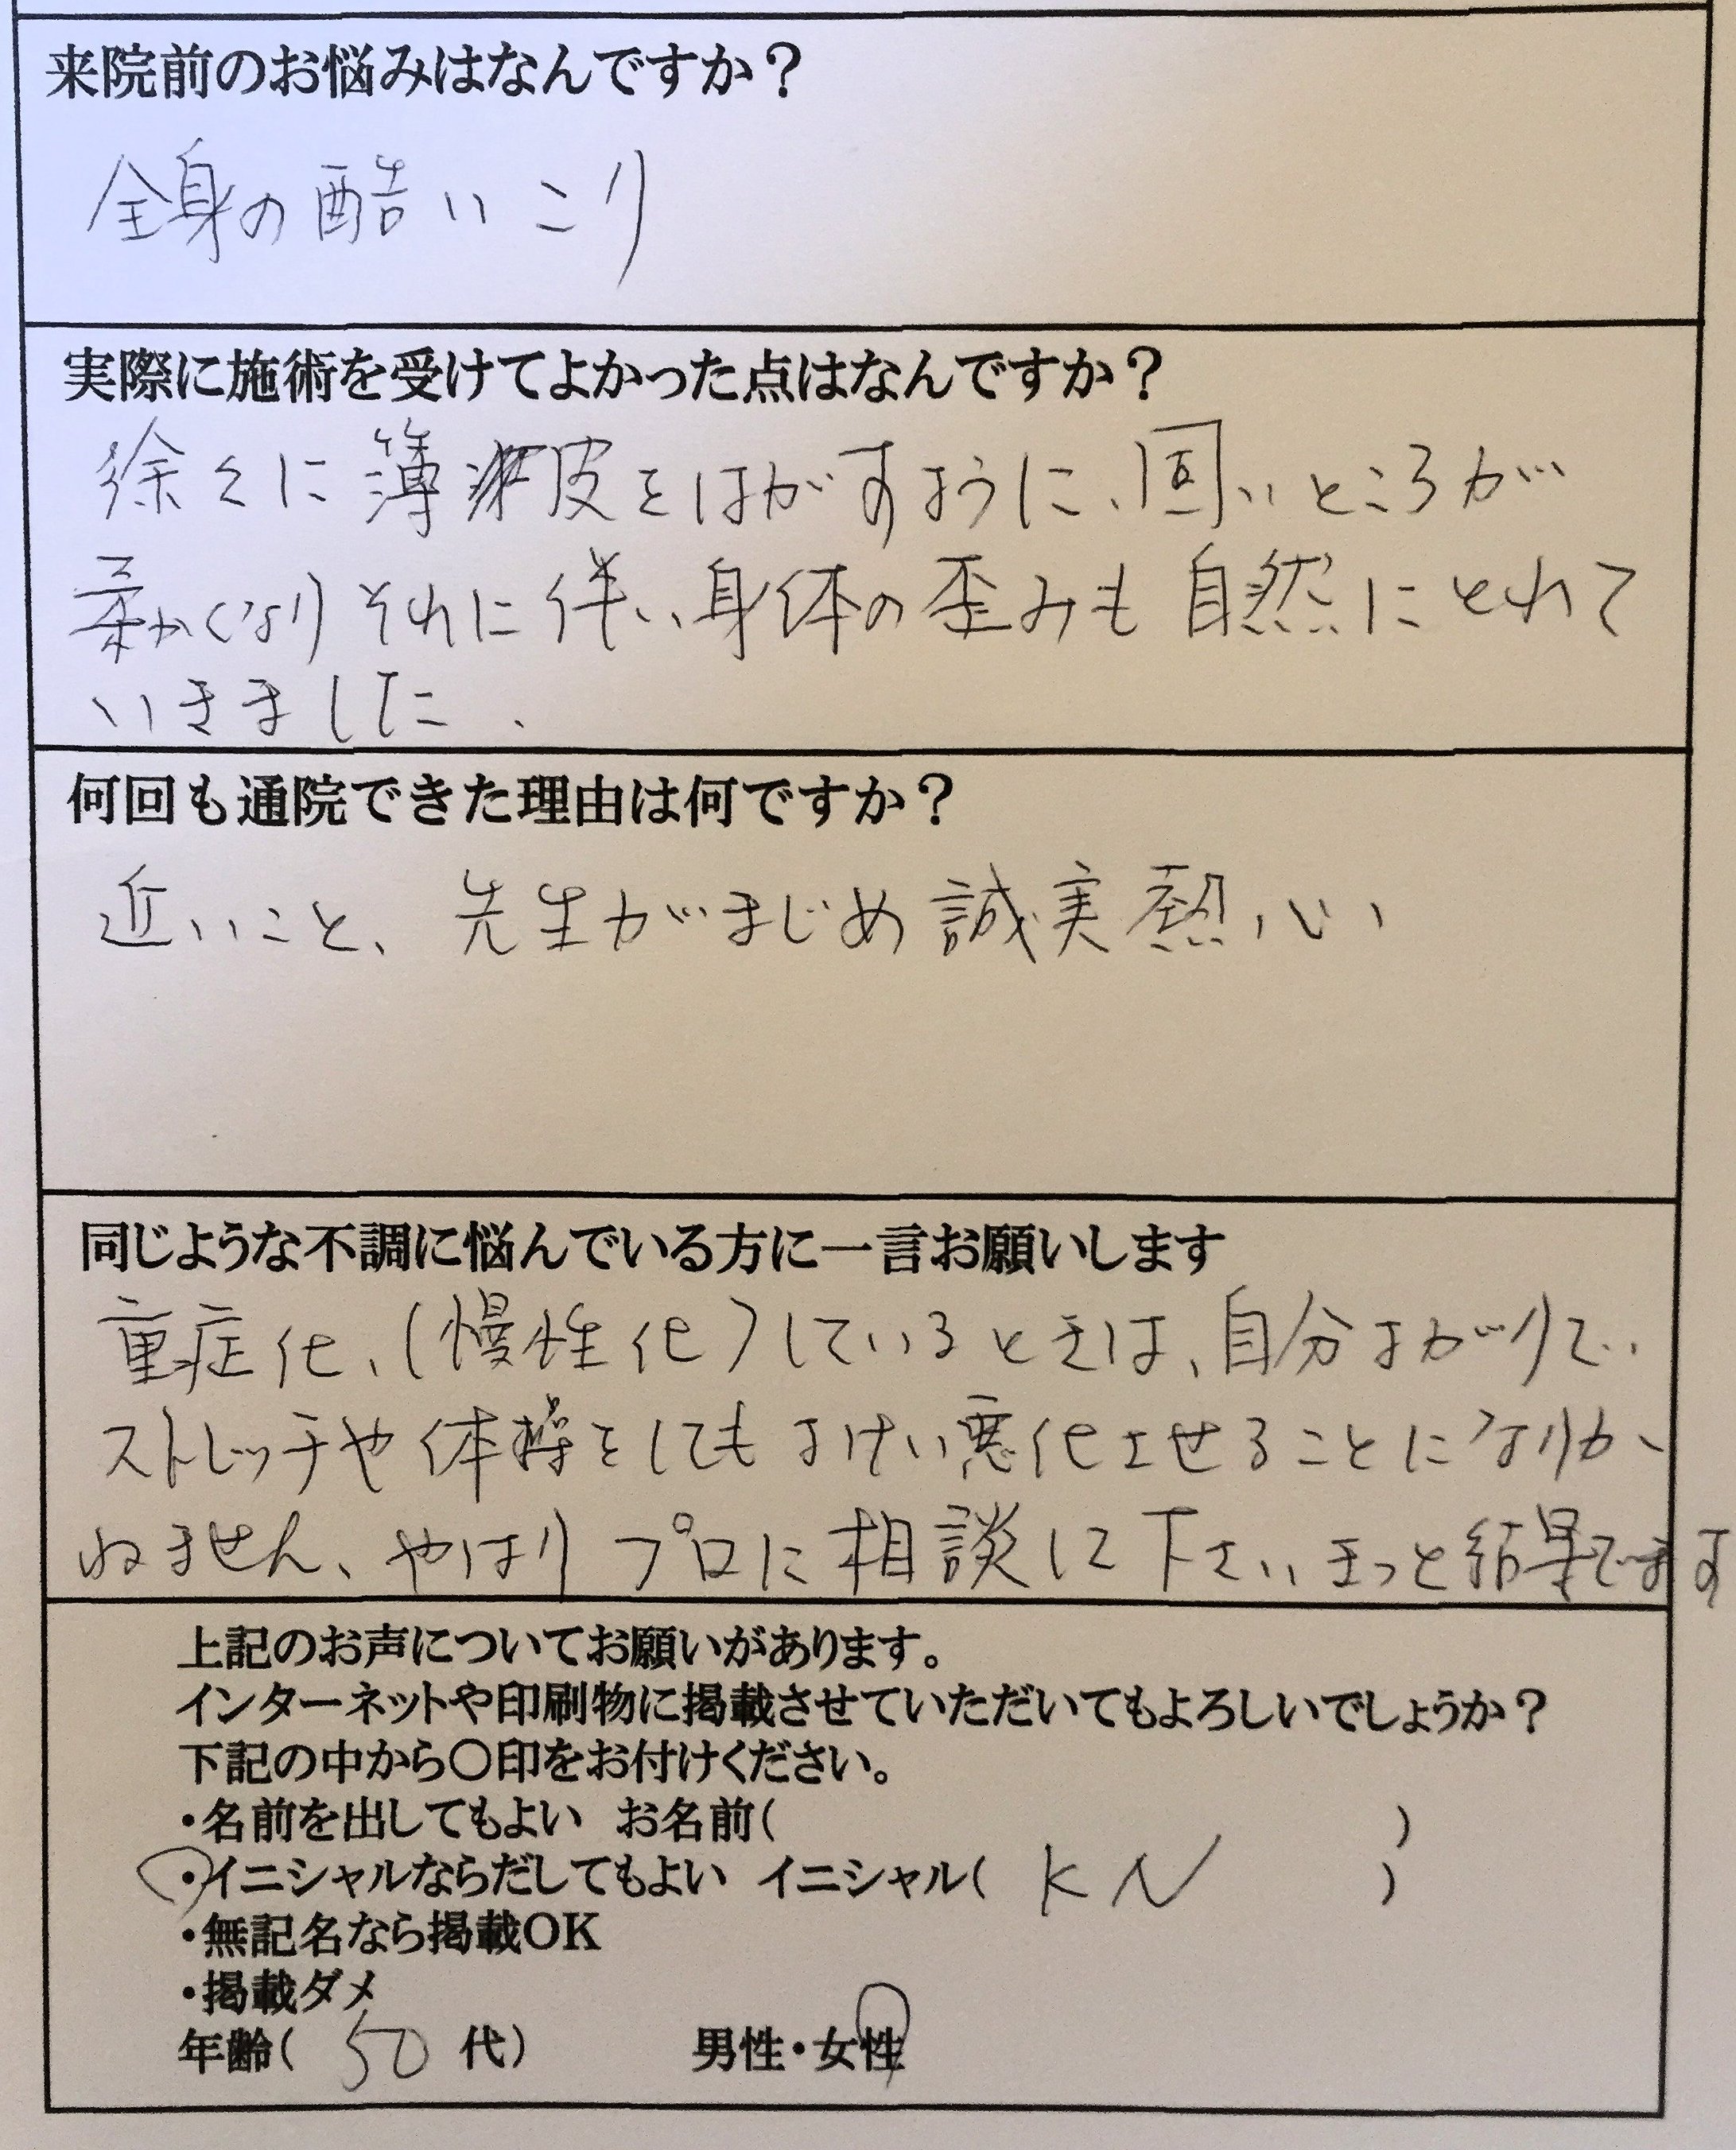 来院前のお悩みはなんですか？
全身の酷いこり
実際に施術を受けてよかった点はなんですか？
徐々に薄皮をはがすように、固いところが
柔かくなりそれに伴い、身体の歪みも自然にとれて
いきました、
何回も通院できた理由は何ですか？
近いこと、先生がまじめ誠実熱心
同じような不調に悩んでいる方に一言お願いします
重症化、(慢性化)しているときは、自分よがりで、
ストレッチや体操をしてもよけい悪化させることになりか
ねません、やはりプロに相談して下さい、きっと結果でます
上記のお声についてお願いがあります。
インターネットや印刷物に掲載させていただいてもよろしいでしょうか？
下記の中から〇印をお付けください。
・名前を出してもよい　お名前(　　　)
・イニシャルならだしてもよい　イニシャル(　KN　)
・無記名なら掲載OK
・掲載ダメ
年齢(　50　代)　　男性・女性